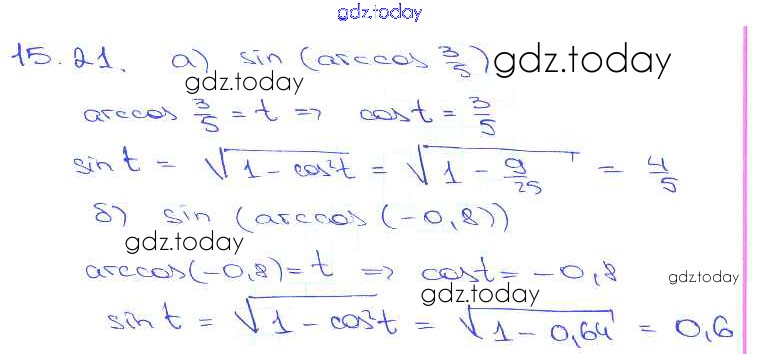 gdz.today
15.21. а) sin (arccos 3/5) gdz.today
gdz.today
arccos 3/5 = t => cos t = 3/5
sin t = √(1 - cos²t) = √(1 - 9/25) = 4/5
б) sin (arccos (-0,8))
gdz.today
arccos(-0,8) = t => cos t = -0,8 gdz.today
gdz.today
sin t = √(1 - cos²t) = √(1 - 0,64) = 0,6